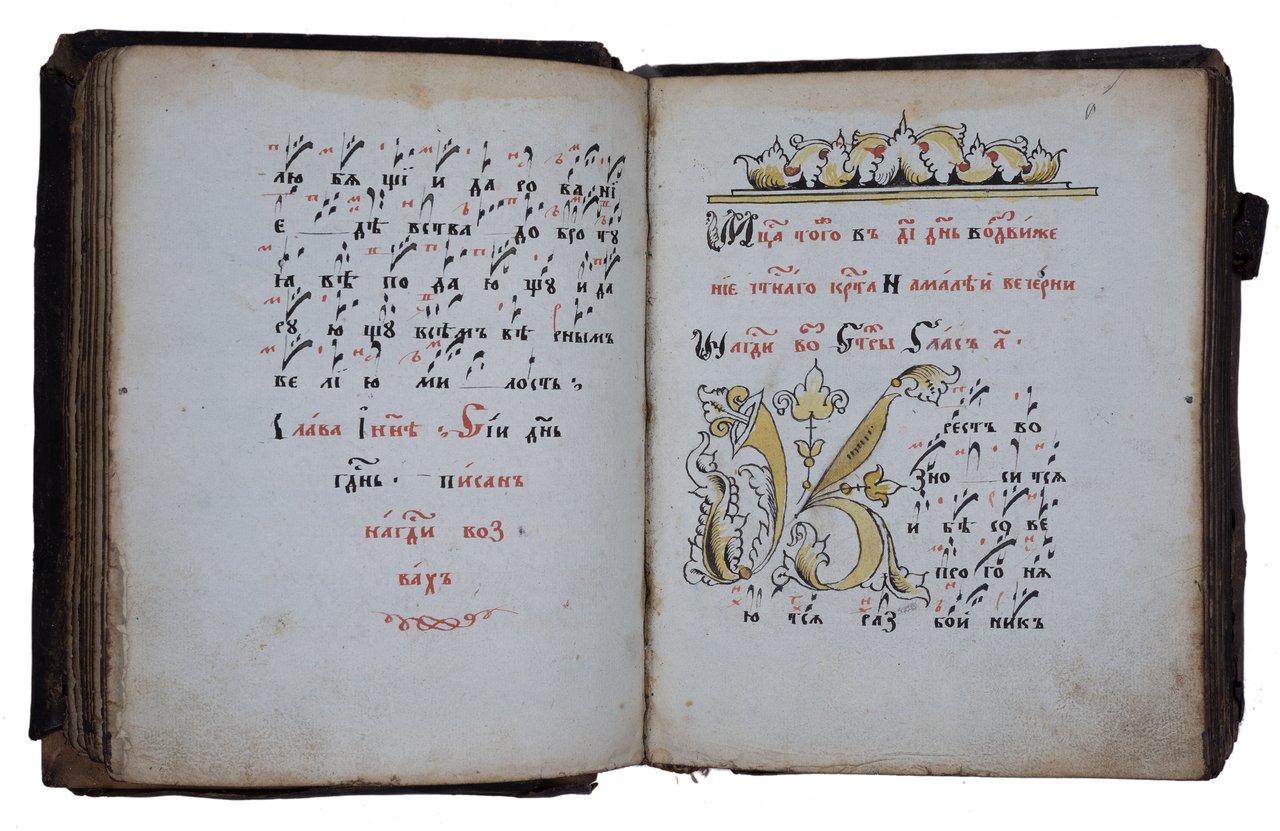 лю бѧщї и да ро ва нї
е дѣ вства до бро чꙋ
ꙗ вѣ по да ю щꙋ и да
рꙋ ю щꙋ всѣмъ вѣ рнымъ
ве лї ю ми лость ;
Сла́ва І н҃нѣ ; Sі́и дн҃ь
гд҃нь · пи́сан
на́ гд҃и воз
ва́хъ
Мц҃а того̀ въ д҃і дн҃ь воздви́же
нїе чтⷭ҇на́го крⷭ҇та̀ На ма́лѣй вече́рни
На гдⷭ҇и воз̾ Стⷯры Гла́съ а҃ ·
К
рестъ во
зно си тсѧ
и бѣ со ве
про го нѧ
ю тсѧ раз бой никъ